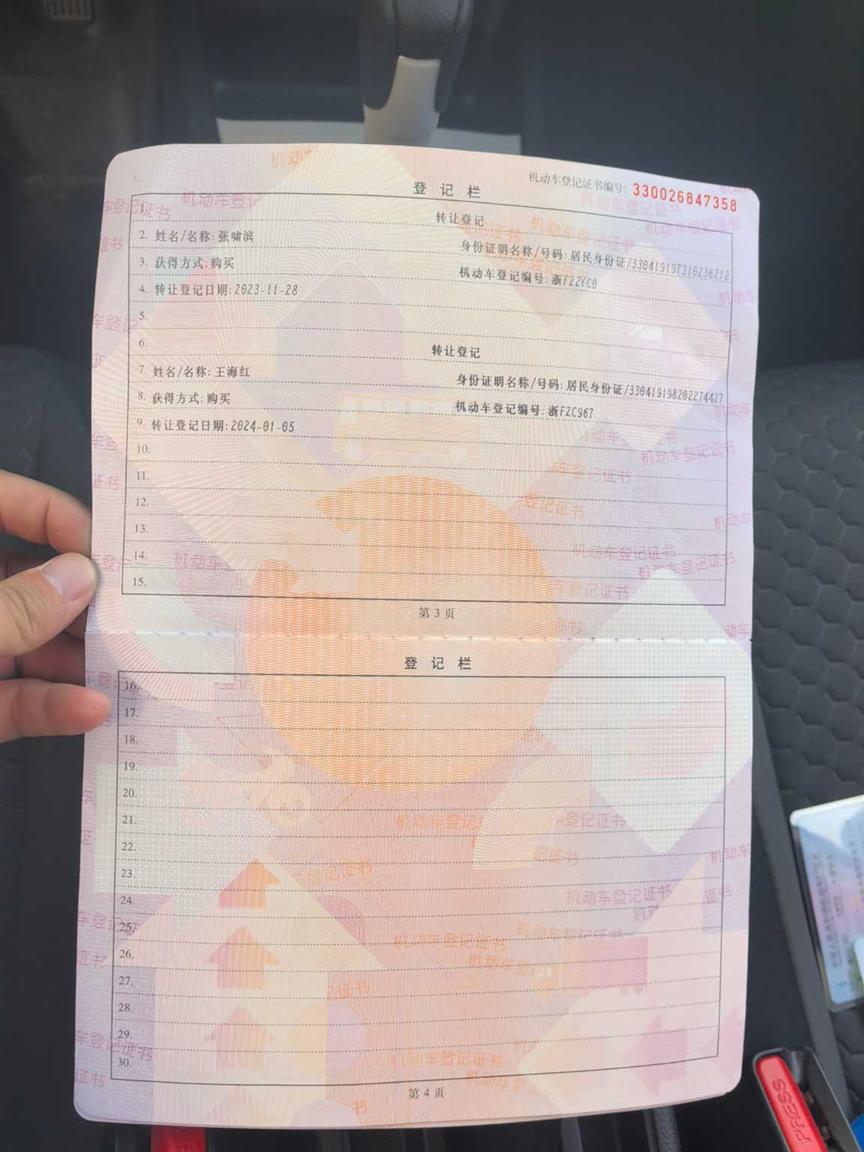 机动车登记证书编号: 330026847358
登记栏
1.
转让登记
2. 姓名/名称: 张啸滨
身份证明名称/号码: 居民身份证/330419197310236212
3. 获得方式: 购买
机动车登记编号: 浙F22YC0
4. 转让登记日期: 2023-11-28
5.
6.
转让登记
7. 姓名/名称: 王海红
身份证明名称/号码: 居民身份证/330419198202274427
8. 获得方式: 购买
机动车登记编号: 浙FZC967
9. 转让登记日期: 2024-01-05
10.
11.
12.
13.
14.
15.
第 3 页
登记栏
16.
17.
18.
19.
20.
21.
22.
23.
24.
25.
26.
27.
28.
29.
30.
第 4 页
PRESS